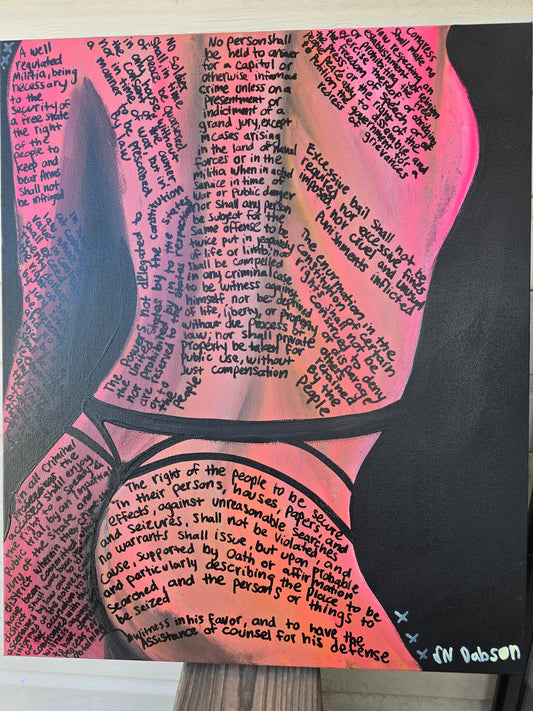 A well
regulated
Militia, being
necessary
to the
security of
a free State
the right
of the
people to
keep and
bear Arms
Shall not
be infringed
No Soldier
shall, in time
of peace be quartered
in any house, without
the consent of the owner
nor in time of war but in
a manner to be prescribed
By law
No person shall
be held to answer
for a capitol or
otherwise infamous
crime unless on a
presentment or
indictment of a
grand jury, except
in cases arising
in the land or Naval
Forces or in the
Militia when in actual
service in time of
War or public danger
nor shall any person
be subject for the
same offense to be
twice put in jeopardy
of life or limb, nor
shall be compelled
in any criminal case
to be witness against
himself, nor be deptived
of life, liberty, or property
without due process of
law; nor shall private
property be taken for
Public use, without
Just compensation
Congress
shall make no
law respecting an
establishment of religion
or prohibiting the free
exercise thereof; or abridging
the freedom of speech or of
the press or the right of the
people peaceably to assemble and
to Petition the Government for a
redress of grievances
Excessive bail shall not be
required, nor excessive fines
imposed, nor cruel and unusual
Punishments inflicted
The enumeration in the
Constitution of certain
rights shall not be
construed to deny
or disparage
others retained
By the
people
The powers not delegated to
the United States by the Constitution
nor prohibited by it to the states
are reserved to the states respectively
or to the
people
in all Criminal
prosecutions the
accused shall enjoy
the right to a speedy &
Public trial by an impartial
jury of the State and
The right of the people to be secure
In their persons, houses, papers, and
effects, against unreasonable searches
and seizures, shall not be violated, and
no warrants shall issue, but upon probable
Cause, supported by Oath or affirmation
and particularly describing the place to be
searched, and the persons or things to
be seized
witness in his favor, and to have the
Assistance of counsel for his defense
JN Dabson